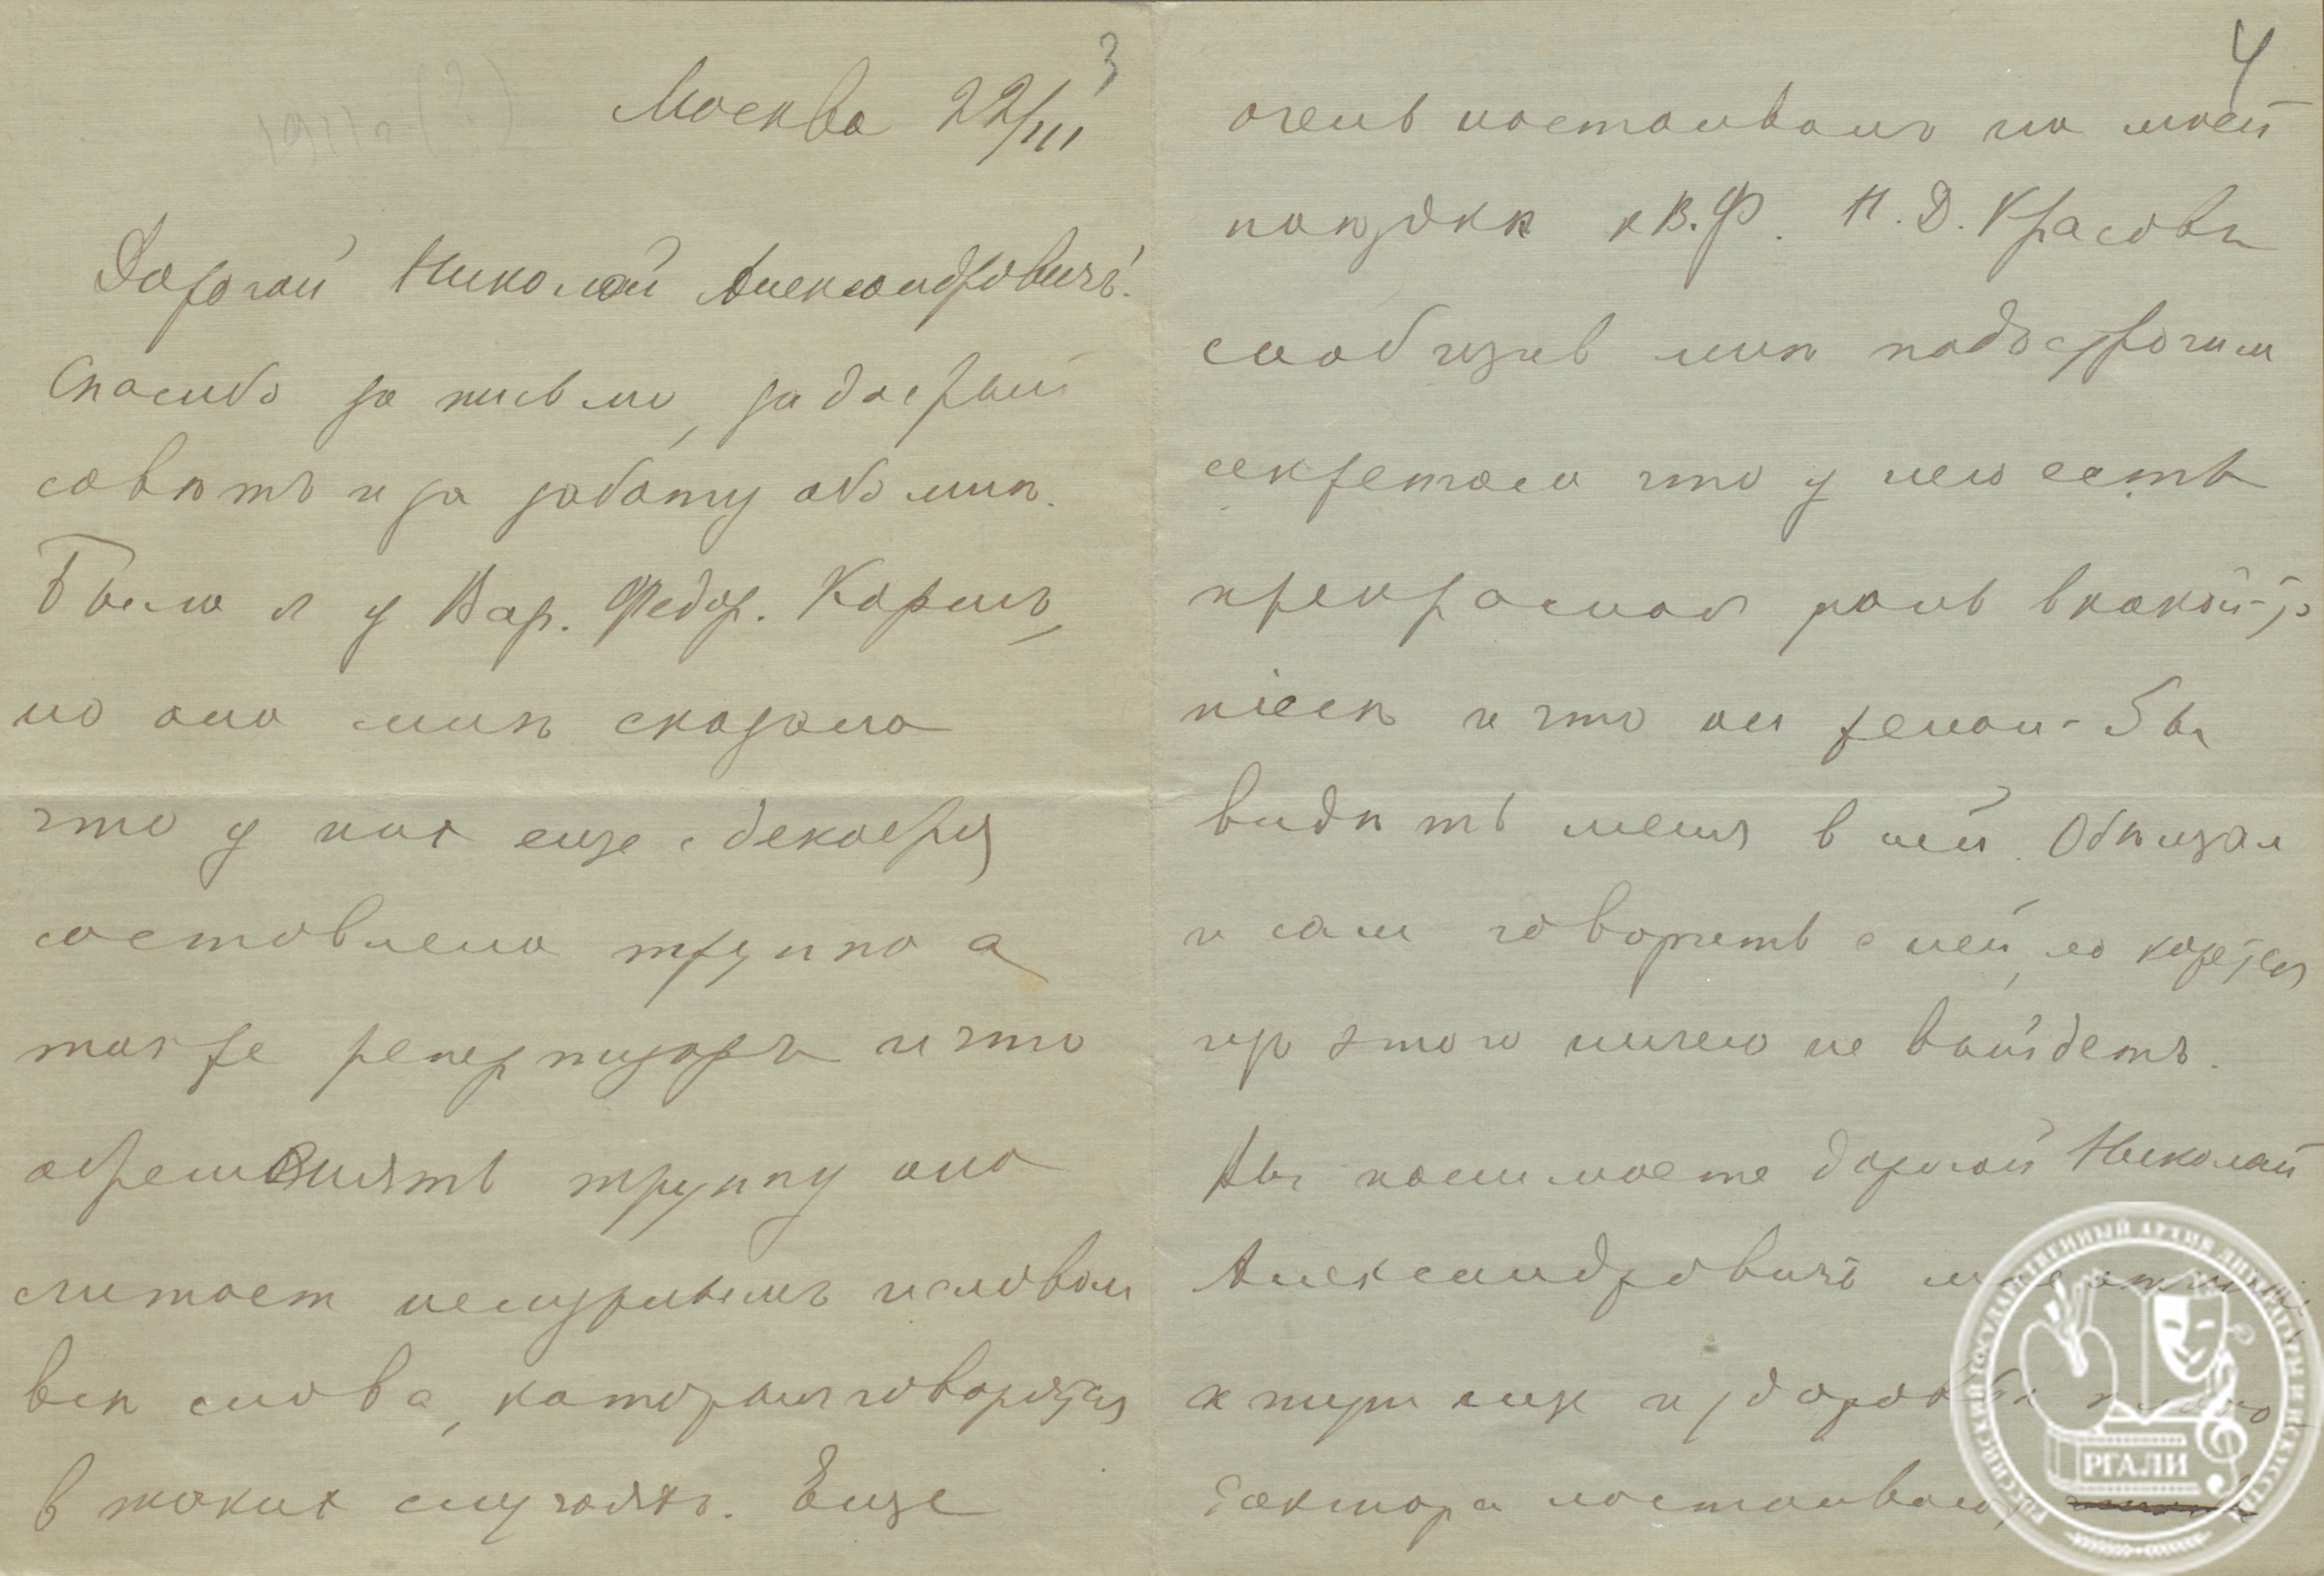 3
Москва 22/III
Дорогой Николай Александровичъ!
Спасибо за письмо, за добрый
совѣтъ и за заботу обо мнѣ.
Была я у Вар. Федор. Коршъ,
но она мнѣ сказала
что у них еще с декабря
составлена труппа а
также репертуаръ и что
обременять труппу она
считает нелуднымъ и словом
всѣ слова, которыя говорятся
в таких случаяхъ. Еще
4
очень настаивалъ на моей
поѣздкѣ к В.Ф. Н.Д. Красовъ
сообщив мнѣ подъ строгим
секретом что у него есть
прекрасная роль в какой-то
піесѣ и что он желал-бы
видѣть меня в ней. Обѣщал
и сам говорить с ней, но кажется
из этого ничего не выйдетъ.
Вы понимаете дорогой Николай
Александровичъ мое
а тут еще и здоровье плохо
доктора настаивают
РОССИЙСКИЙ ГОСУДАРСТВЕННЫЙ АРХИВ ЛИТЕРАТУРЫ И ИСКУССТВА
РГАЛИ